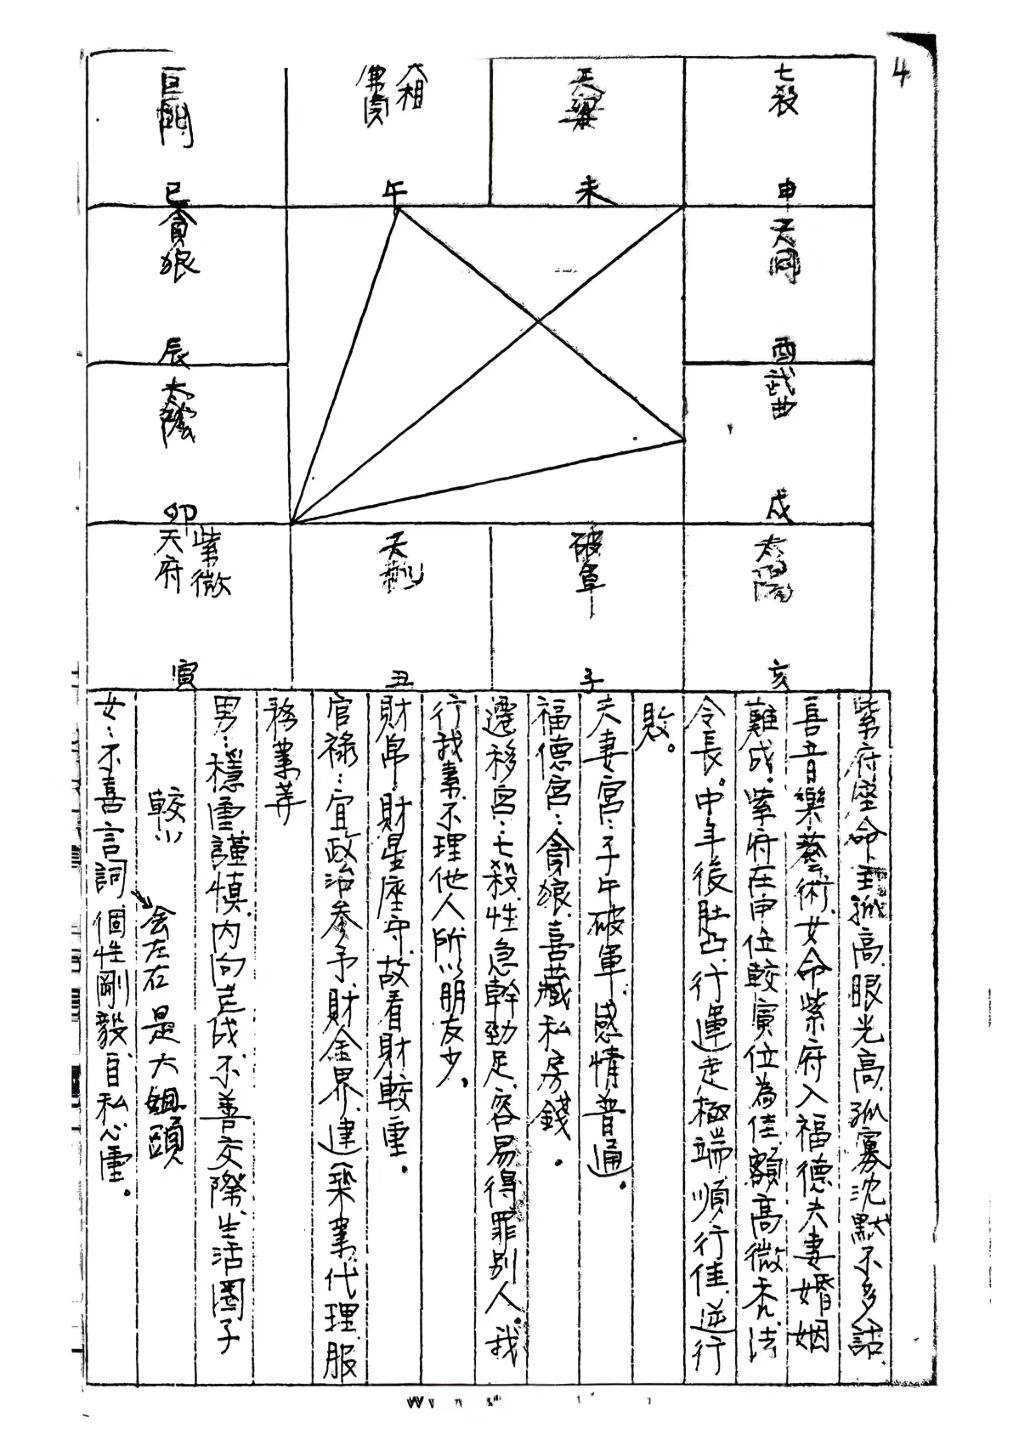 4
巨門
巳
天相
廉貞
午
天梁
未
七殺
申
貪狼
辰
天同
酉
太陰
卯
武曲
戌
紫微
天府
寅
天機
丑
破軍
子
太陽
亥
紫府坐命主孤高眼光高孤寡沈默不多話
喜音樂藝術女命紫府入福德夫妻婚姻
難成紫府在申位較寅位為佳額高微禿法
令長。中年後肚凸行運走極端順行佳逆行
敗。
夫妻宮:子午破軍感情普通。
福德宮:貪狼喜藏私房錢。
遷移宮:七殺性急幹勁足容易得罪別人。我
行我素不理他人所以朋友少。
財帛:財星座守故看財較重。
官祿:宜政治參予財金界建築業代理服
務業等
男:穩重謹慎內向老成不善交際生活圈子
較小
會左右是大姐頭
女:不喜言詞個性剛毅自私心重。